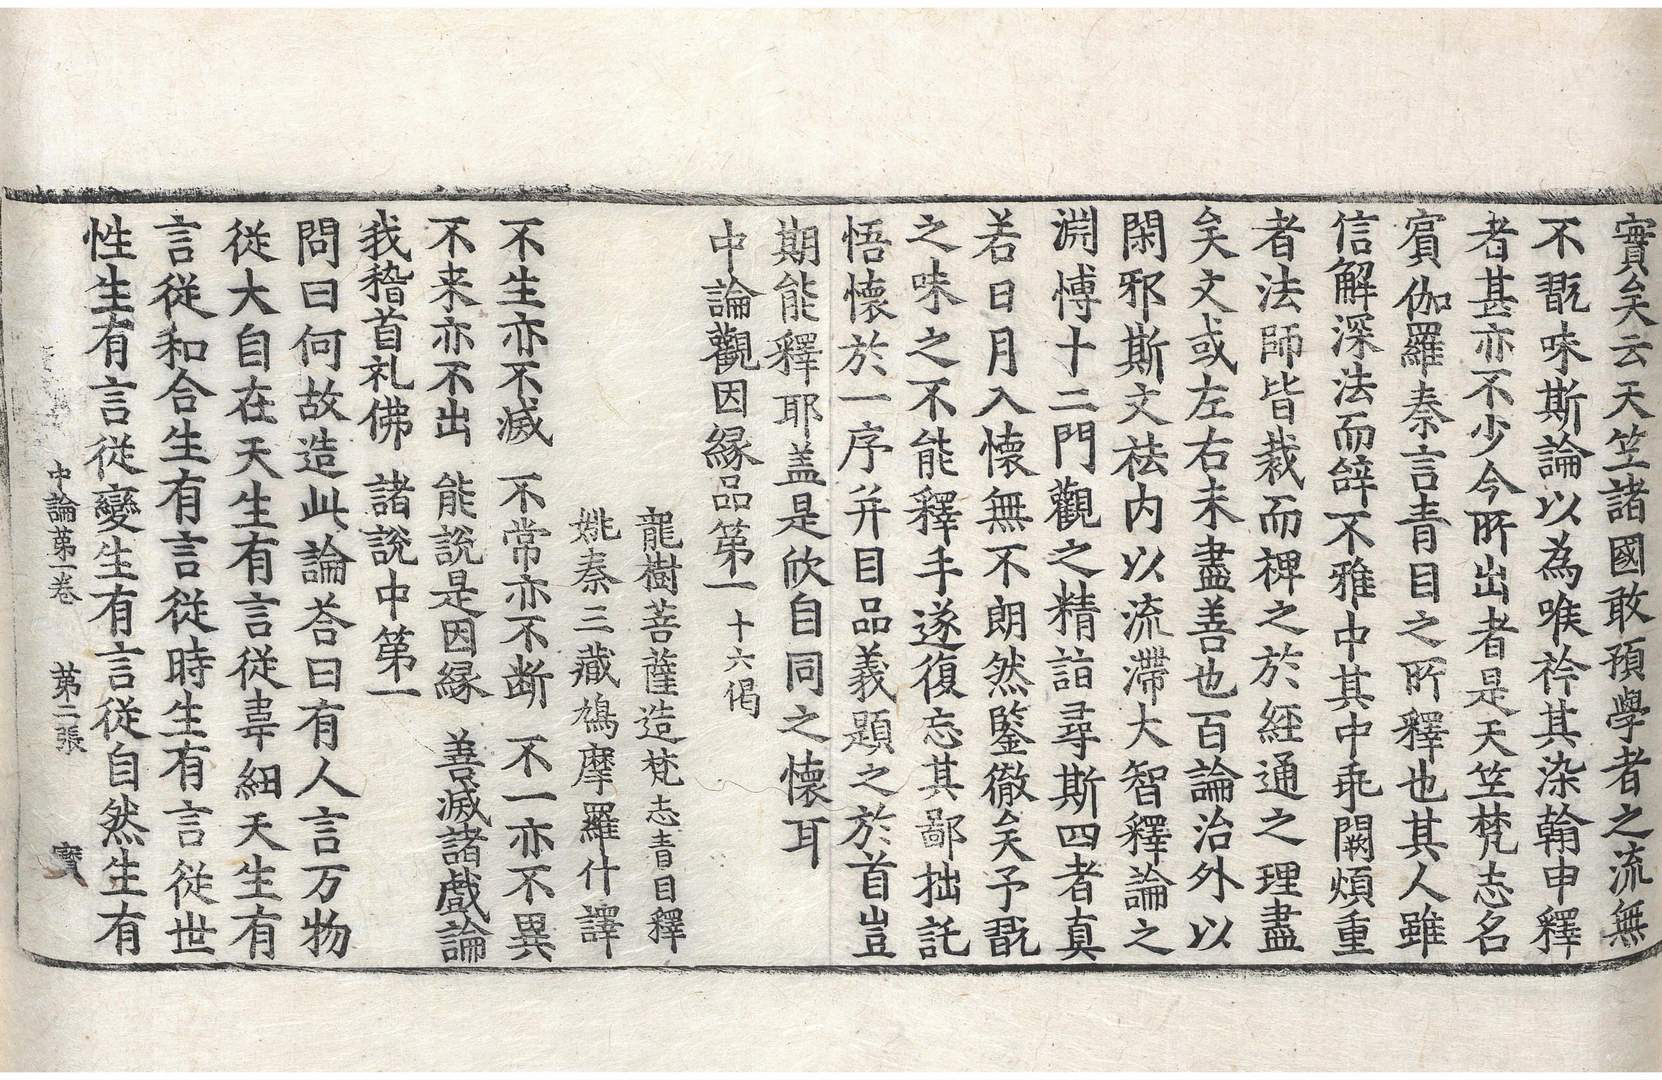 實矣云天竺諸國敢預學者之流無
不翫味斯論以為喉衿其染翰申釋
者甚亦不少今所出者是天竺梵志名
賓伽羅秦言青目之所釋也其人雖
信解深法而辝不雅中其中乖闕煩重
者法師皆裁而裨之於經通之理盡
矣文或左右未盡善也百論治外以
閑邪斯文袪内以流滯大智釋論之
淵博十二門觀之精詣尋斯四者真
若日月入懷無不朗然鑒徹矣予翫
之味之不能釋手遂復忘其鄙拙託
悟懷於一序并目品義題之於首豈
期能釋耶盖是欣自同之懷耳
中論觀因縁品第一 十六偈
龍樹菩薩造梵志青目釋
姚秦三藏鳩摩羅什譯
不生亦不滅 不常亦不断 不一亦不異
不来亦不出 能説是因縁 善滅諸戲論
我稽首礼佛 諸説中第一
問曰何故造此論荅曰有人言万物
從大自在天生有言從韋細天生有
言從和合生有言從時生有言從世
性生有言從變生有言從自然生有
中論苐一卷 苐二張 寳